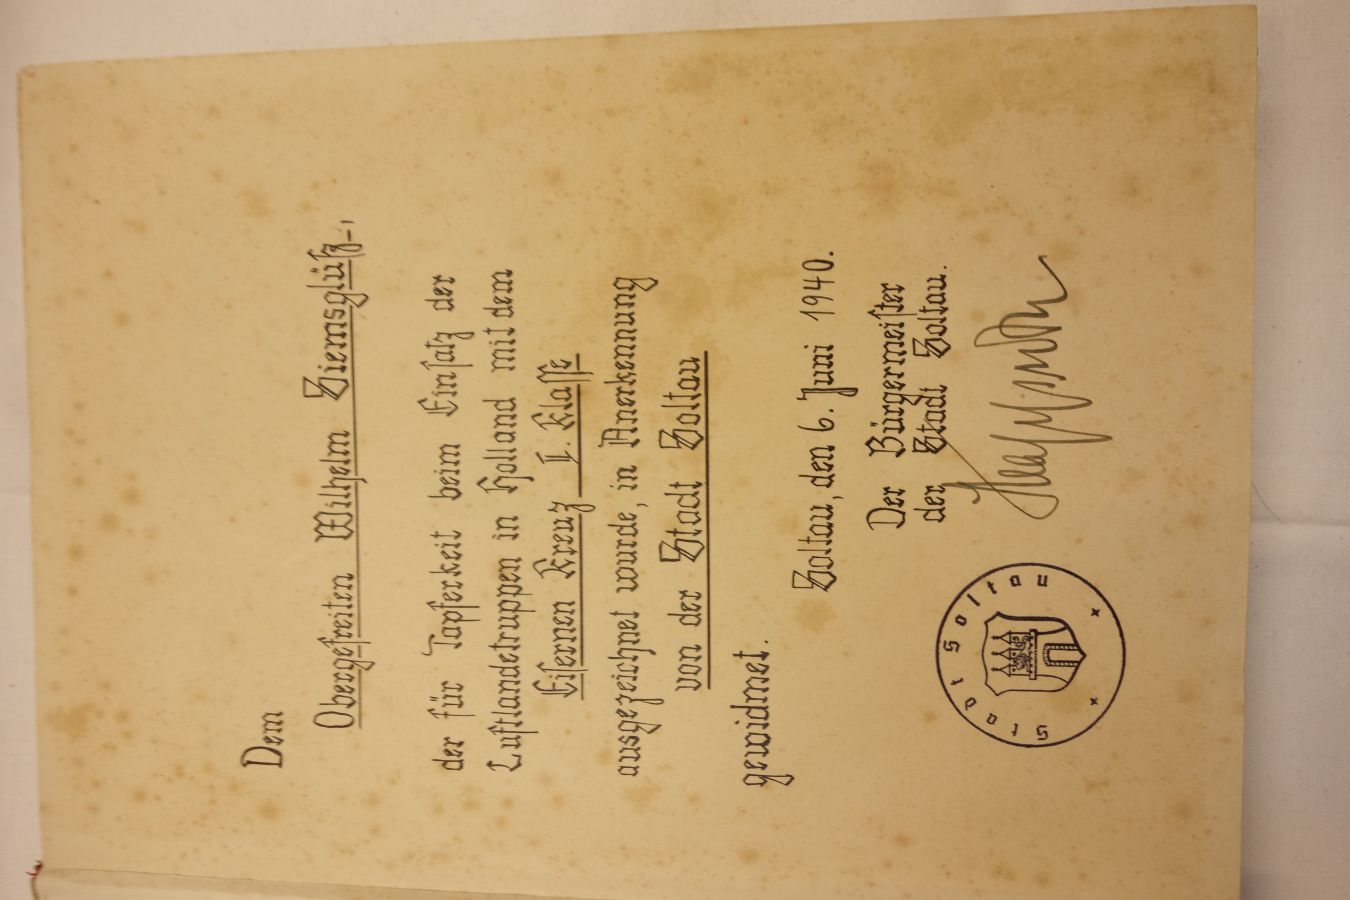 Dem
Obergefreiten Wilhelm Siemsglüß,
der für Tapferkeit beim Einsatz der
Luftlandetruppen in Holland mit dem
Eisernen Kreuz II. Klasse
ausgezeichnet wurde, in Anerkennung
von der Stadt Soltau
gewidmet.
Soltau, den 6. Juni 1940.
Der Bürgermeister
der Stadt Soltau.
Stadt Soltau